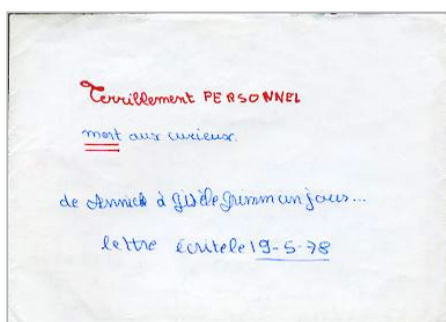 Terriblement PERSONNEL
mort aux curieux.
de Annick à Gisèle Grimm un jour...
lettre écrite le 19-5-78